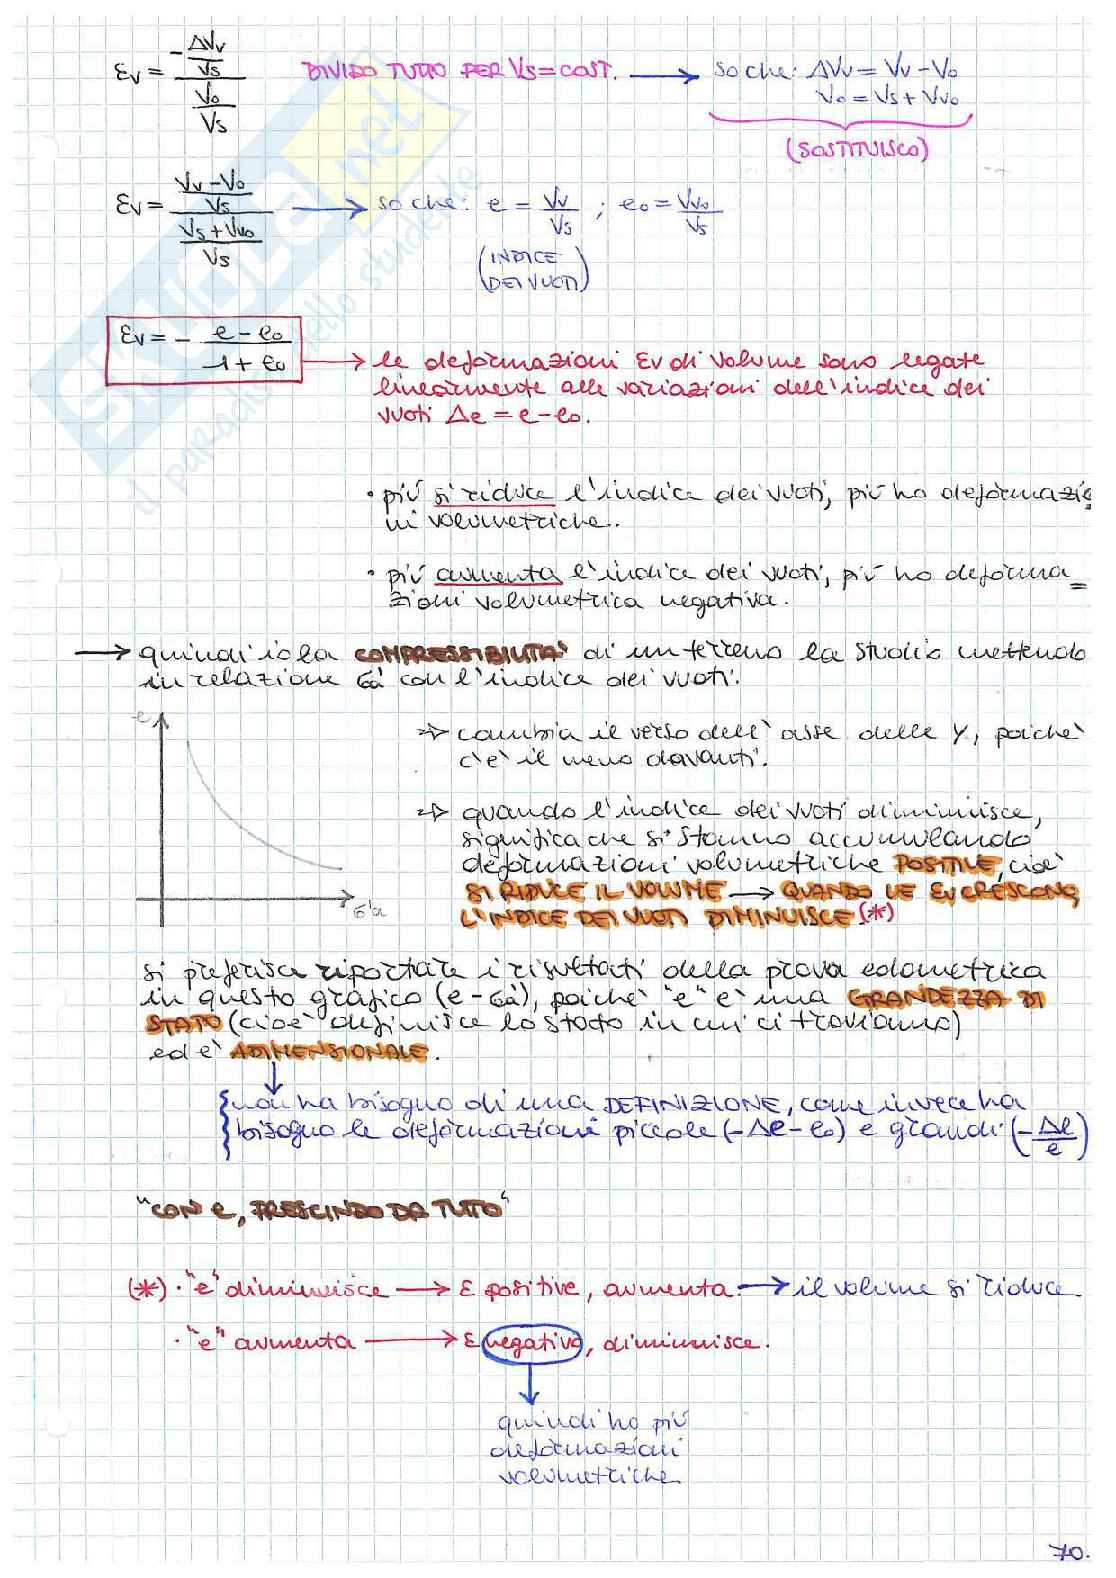 εv = -ΔVv/Vs / V0/Vs DIVIDO TUTTO PER Vs = COST. → so che: ΔVv = Vv - V0
V0 = Vs + Vv0
(SOSTITUISCO)
εv = Vv - V0/Vs / Vs + Vv0/Vs → so che: e = Vv/Vs ; e0 = Vv0/Vs
(INDICE
DEI VUOTI)
εv = - e - e0 / 1 + e0 → le deformazioni εv di volume sono legate
linearmente alle variazioni dell'indice dei
vuoti Δe = e - e0.
• più si riduce l'indice dei vuoti, più ho deformazio
ni volumetriche..
• più aumenta l'indice dei vuoti, più ho deforma=
zioni volumetrica negativa.
→ quindi io la COMPRESSIBILITA' di un terreno la studio mettendo
in relazione σ'a con l'indice dei vuoti.
e
⇒ cambia il verso dell'asse delle y, poichè
c'è il meno davanti.
⇒ quando l'indice dei vuoti diminuisce,
significa che si stanno accumulando
deformazioni volumetriche POSITIVE, cioè
SI RIDUCE IL VOLUME → QUANDO LE εv CRESCONO,
L'INDICE DEI VUOTI DIMINUISCE (*)
σ'a
si preferisce riportare i risultati della prova edometrica
in questo grafico (e - σ'a), poichè "e" è una GRANDEZZA DI
STATO (cioè definisce lo stato in cui ci troviamo)
ed è ADIMENSIONALE.
non ha bisogno di una DEFINIZIONE, come invece ha
bisogno le deformazioni piccole (-Δe - e0) e grandi (-Δe/e)
"CON e, PRESCINDO DA TUTTO"
(*) • "e" diminuisce → ε positive, aumenta → il volume si riduce.
• "e" aumenta → ε negativo, diminuisce.
quindi ho più
deformazioni
volumetriche
70.
SKUOLA.net
il paradiso dello studente